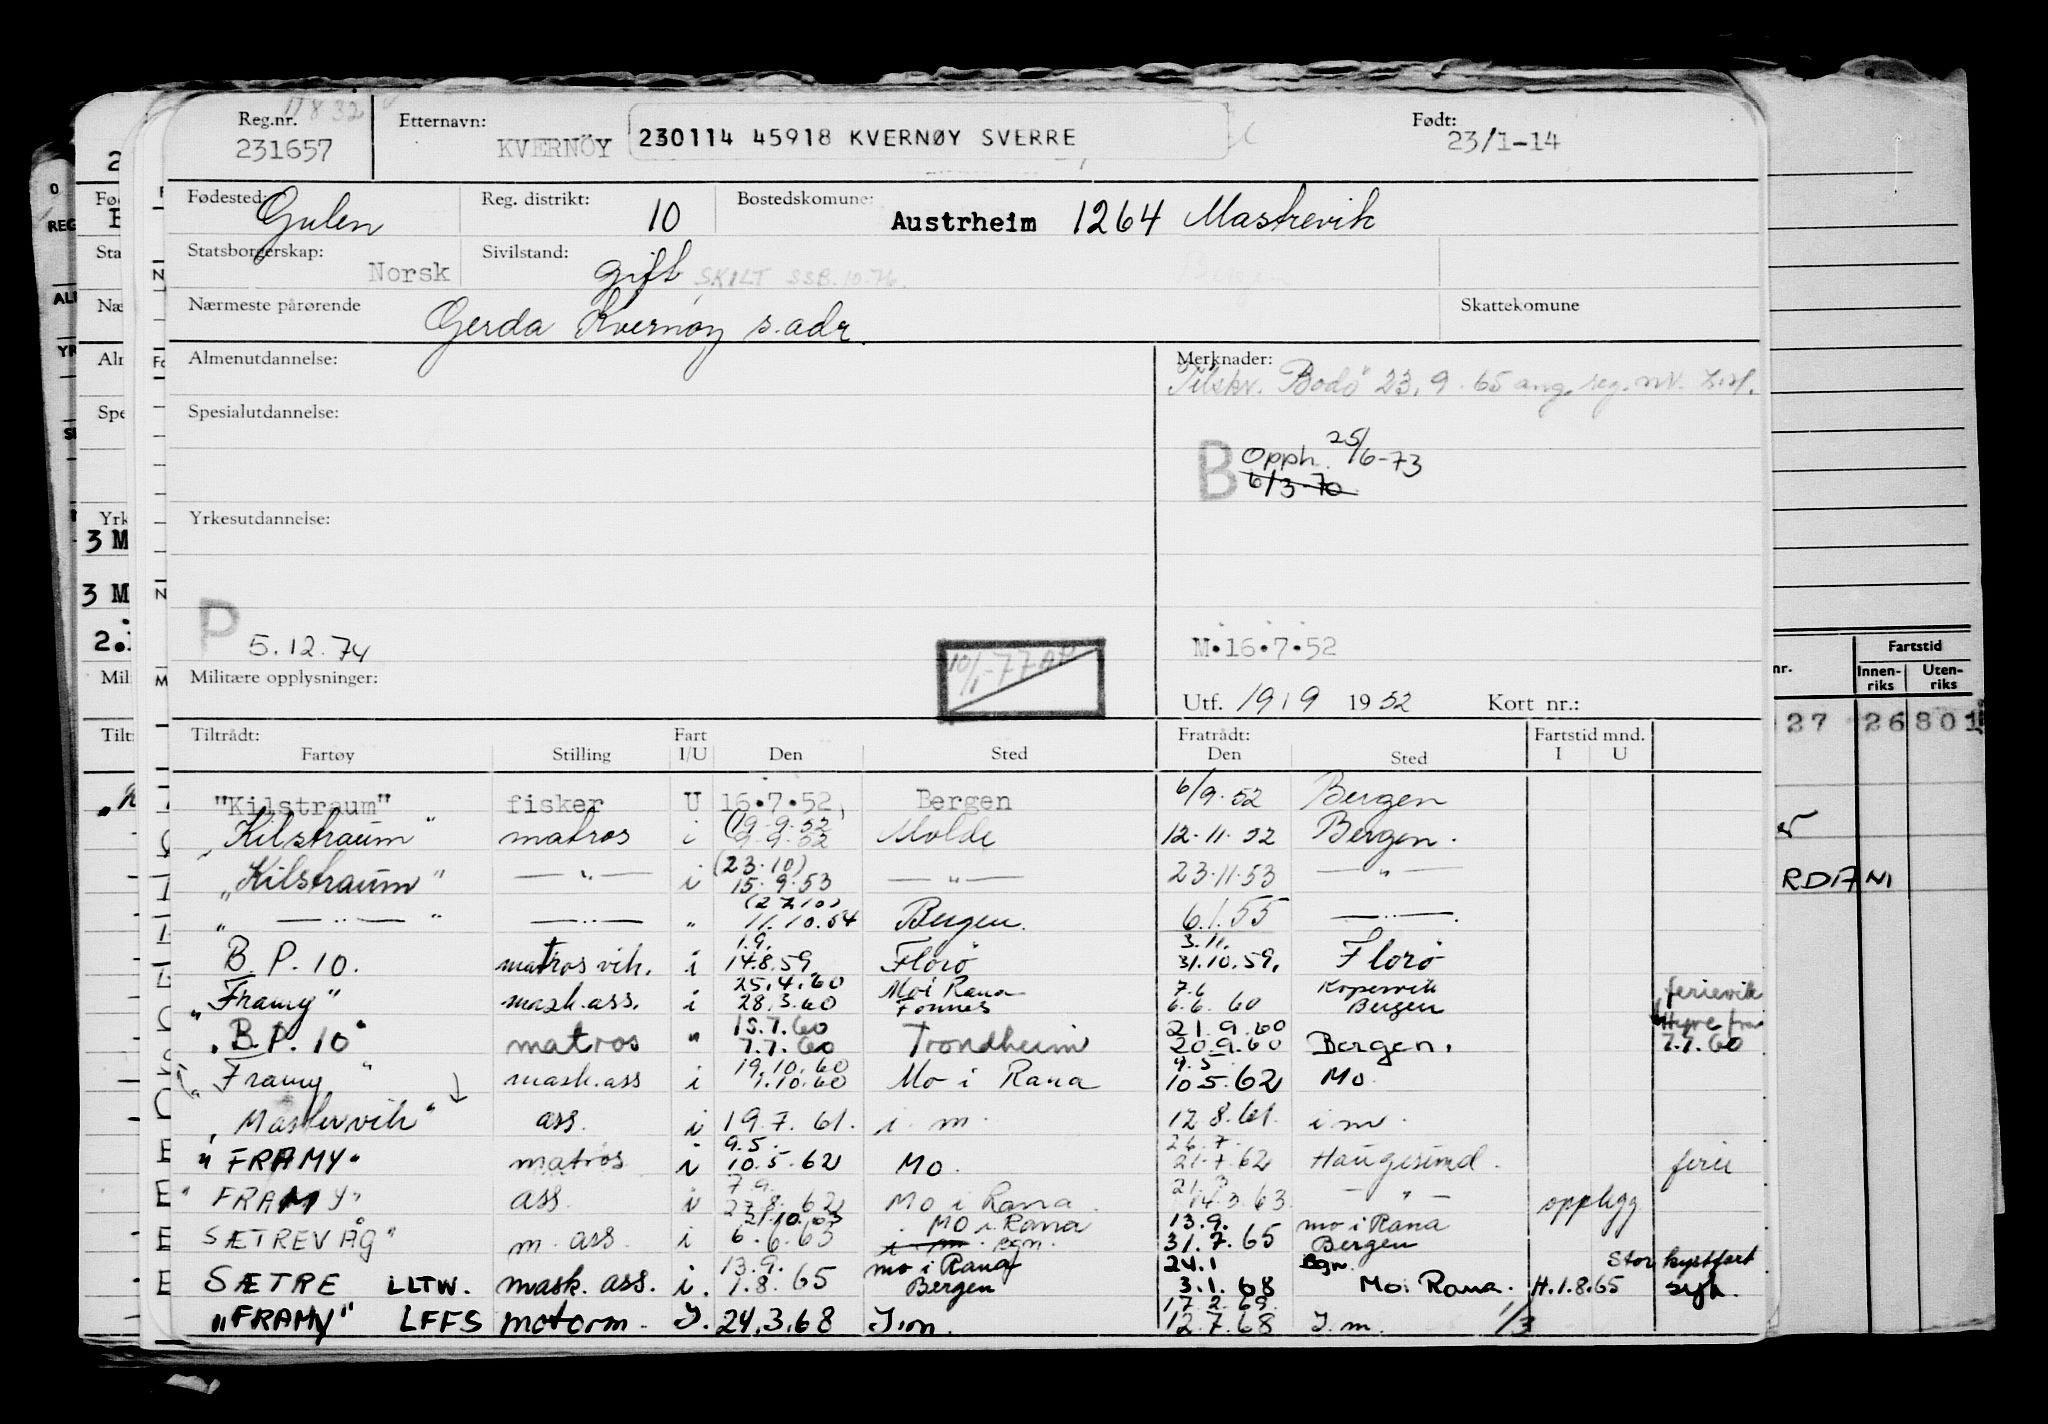 11832
Reg.nr. 231657 Etternavn: KVERNÖY 230114 45918 KVERNØY SVERRE Født: 23/1-14
Fødested: Gulen Reg. distrikt: 10 Bostedskommune: Austrheim 1264 Mastrevik
Statsborgerskap: Norsk Sivilstand: gift SKILT SSB. 10.76. Bergen
Nærmeste pårørende Gerda Kvernøy s. adr. Skattekomune
Almenutdannelse: Merknader:
Tilskr. Bodö 23.9.65 ang. reg. nr.
Spesialutdannelse:
B Opph. 25/6-73
6/3-70
Yrkesutdannelse:
P 5.12.74
10/1-77
M.16.7.52
Militære opplysninger: Utf. 19/9 1952 Kort nr.:
Tiltrådt: Fart Fratrådt: Fartstid mnd.
Fartøy Stilling I/U Den Sted Den Sted I U
"Kilstraum" fisker U 16.7.52, Bergen 6/9.52 Bergen
"Kilstraum" matros i (19.9.52 9.9.52 Molde 12.11.52 Bergen.
"Kilstraum" — " — i (23.10) 15.9.53 — " — 23.11.53 — " —
" — " — " — " — " (27.10) 11.10.54 Bergen. 6.1.55 — " —.
B.P. 10. matros vik. i 1.9. 14.8.59 Florö 3.11. 31.10.59. Florö
"Framy" mask.ass. i 25.4.60 28.3.60 Mo i Rana Fonnes 7.6 6.6.60 Kopervik Bergen ferievik
"B.P. 10" matros " 15.7.60 7.7.60 Trondheim 21.9.60 20.9.60 Bergen. Hyre fra 7.7.60
"Framy" mask.ass i 19.10.60 1.10.60 Mo i Rana 9.5. 10.5.62 Mo.
"Mastrevik" ass. i 19.7.61. i. m. 12.8.61. i. m.
"FRAMY" matros i 9.5. 10.5.62 Mo. 26.7. 21.7.62 Haugesund. ferie
"FRAMY" ass. i 7.9. 27.8.62 Mo i Rana. 21.3 14.3.63 — " — opplegg
SÆTREVÅG" m. ass. i 21.10.63 6.6.63 Mo i Rana i. m. Bgn. 13.9. 31.7.65 mo i Rana Bergen
SÆTRE LLTW. mask. ass. i. 13.9. 1.8.65 mo i Rana Bergen 24.1 3.1.68 Bgn. Mo i Rana. H.1.8.65 Stor kystfart syk.
"FRAMY" LFFS motorm. I. 24.3.68 I.m. 17.2.69. 12.7.68 I. m. 1/3
Fartstid
Innen-riks Uten-riks
27 26 801
RDIANI